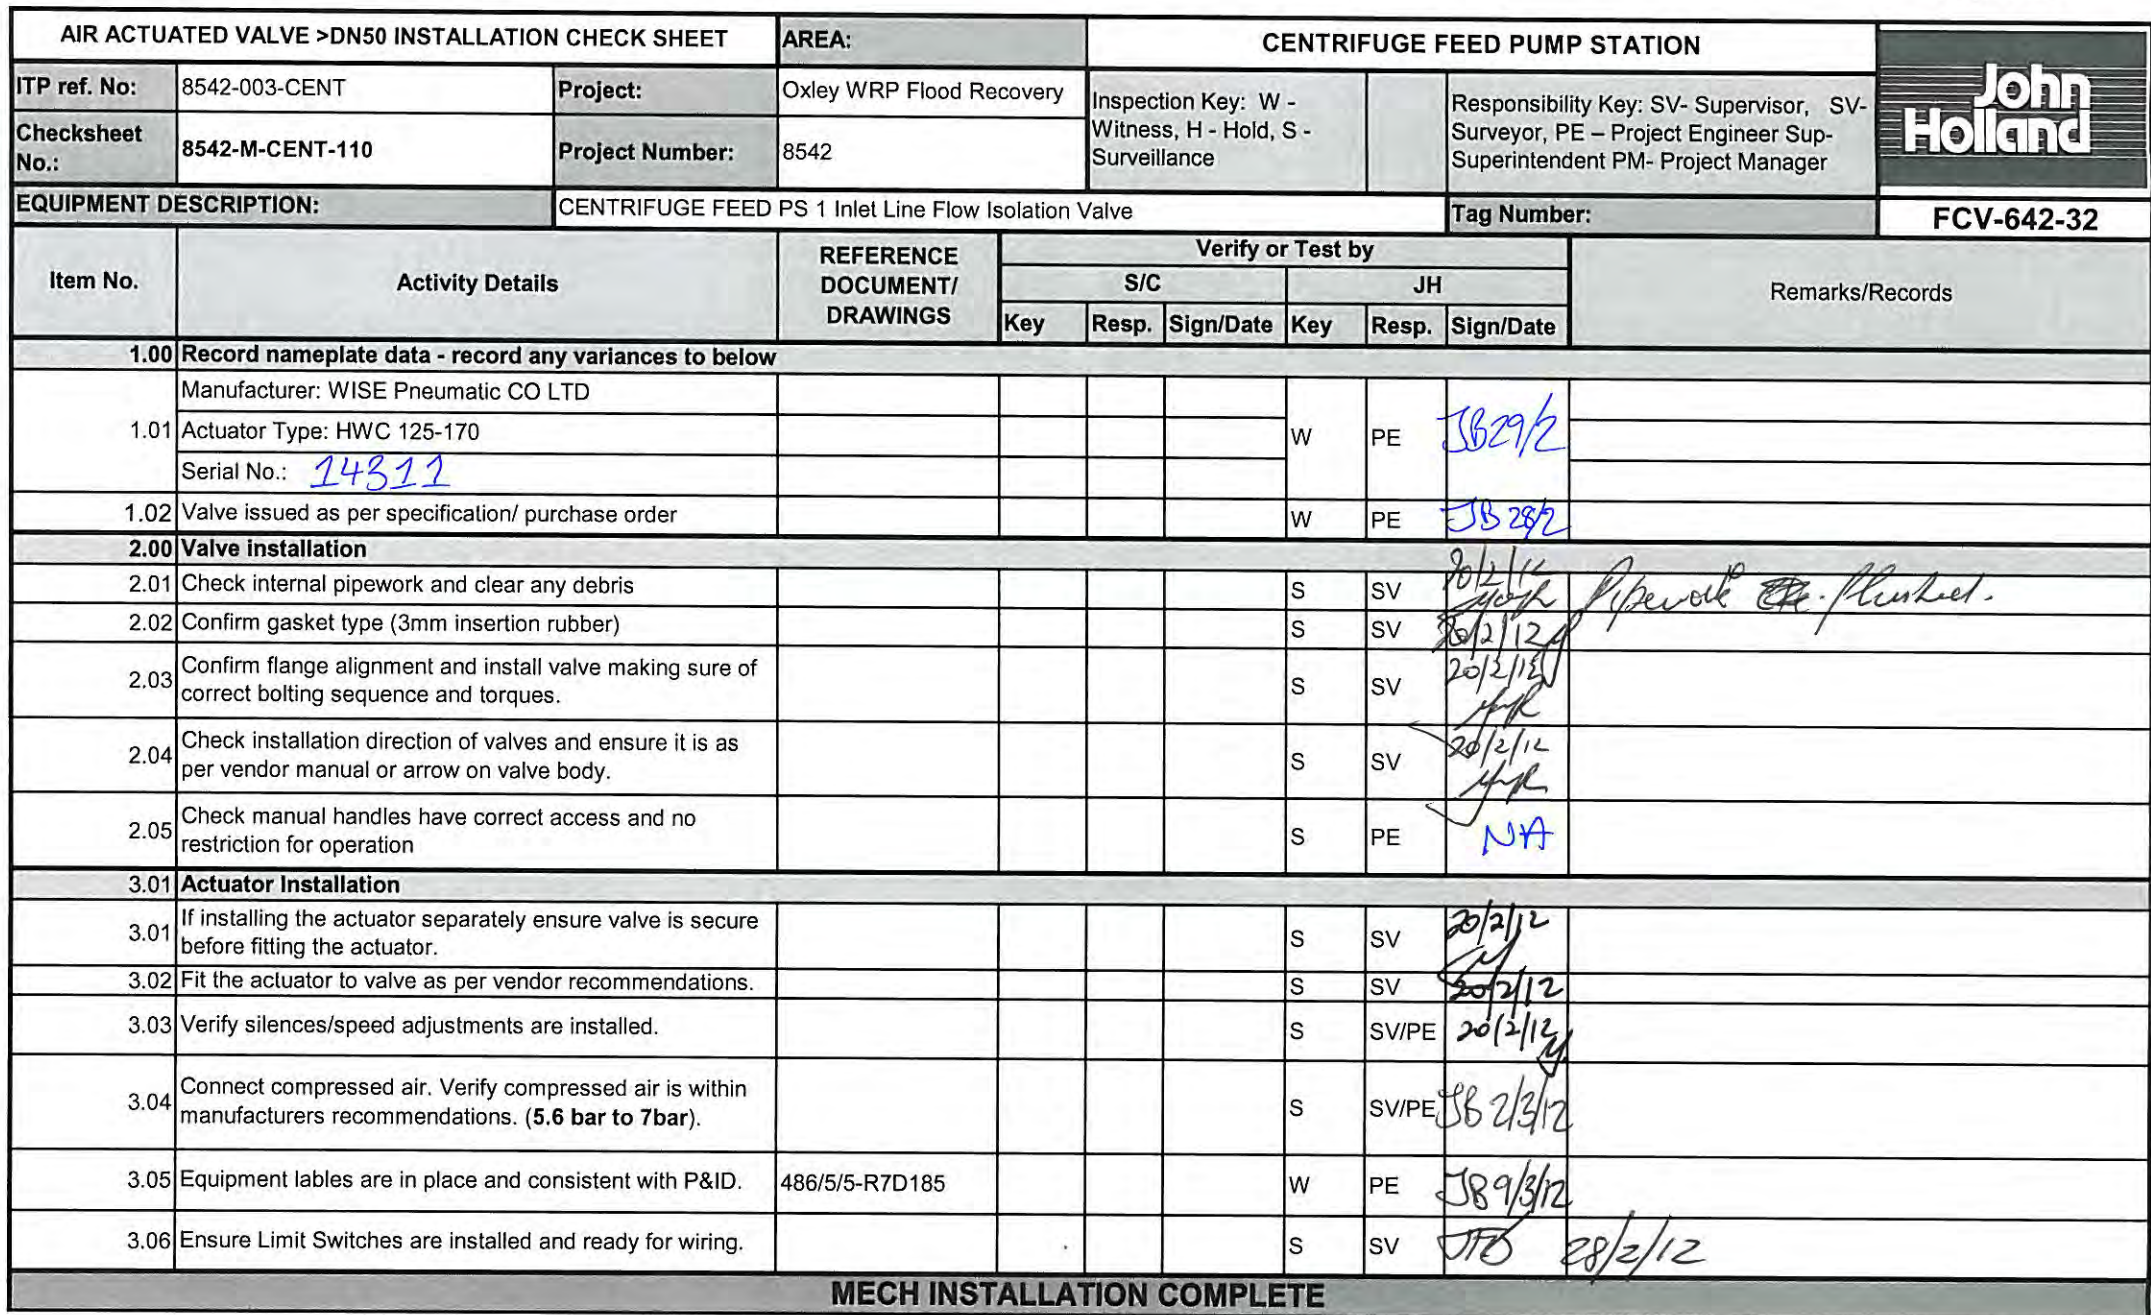 AIR ACTUATED VALVE >DN50 INSTALLATION CHECK SHEET AREA: CENTRIFUGE FEED PUMP STATION
John Holland
ITP ref. No: 8542-003-CENT Project: Oxley WRP Flood Recovery
Inspection Key: W - Witness, H - Hold, S - Surveillance
Responsibility Key: SV- Supervisor, SV- Surveyor, PE – Project Engineer Sup- Superintendent PM- Project Manager
Checksheet No.: 8542-M-CENT-110 Project Number: 8542
EQUIPMENT DESCRIPTION: CENTRIFUGE FEED PS 1 Inlet Line Flow Isolation Valve Tag Number: FCV-642-32
Item No. Activity Details REFERENCE DOCUMENT/ DRAWINGS Verify or Test by Remarks/Records
S/C JH
Key Resp. Sign/Date Key Resp. Sign/Date
1.00 Record nameplate data - record any variances to below
Manufacturer: WISE Pneumatic CO LTD
1.01 Actuator Type: HWC 125-170 W PE JB 29/2
Serial No.: 14311
1.02 Valve issued as per specification/ purchase order W PE JB 28/2
2.00 Valve installation
2.01 Check internal pipework and clear any debris S SV 20/2/12 flushed.
2.02 Confirm gasket type (3mm insertion rubber) S SV 20/2/12
2.03 Confirm flange alignment and install valve making sure of
correct bolting sequence and torques. S SV 20/2/12
2.04 Check installation direction of valves and ensure it is as
per vendor manual or arrow on valve body. S SV 20/2/12
2.05 Check manual handles have correct access and no
restriction for operation S PE NA
3.01 Actuator Installation
3.01 If installing the actuator separately ensure valve is secure
before fitting the actuator. S SV 20/2/12
3.02 Fit the actuator to valve as per vendor recommendations. S SV 20/2/12
3.03 Verify silences/speed adjustments are installed. S SV/PE 20/2/12
3.04 Connect compressed air. Verify compressed air is within
manufacturers recommendations. (5.6 bar to 7bar). S SV/PE JB 2/3/12
3.05 Equipment lables are in place and consistent with P&ID. 486/5/5-R7D185 W PE JB 9/3/12
3.06 Ensure Limit Switches are installed and ready for wiring. S SV 28/2/12
MECH INSTALLATION COMPLETE